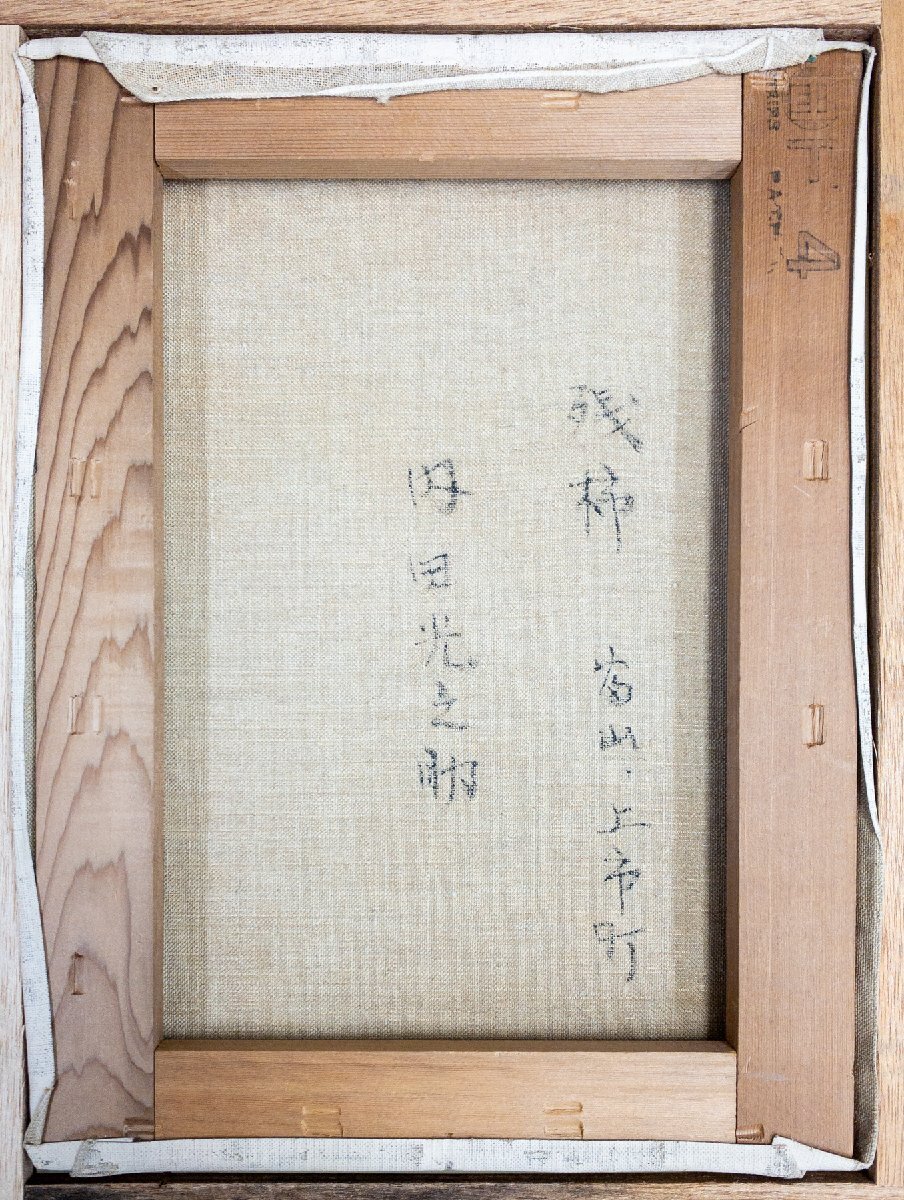 残柿 富山・上市町
田光之助
4